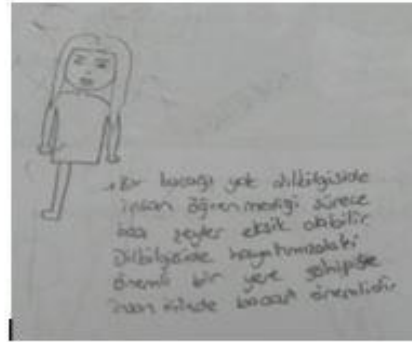 Bir bacağı yok dilbilgiside
insan öğrenmediği sürece
bazı şeyler eksik olabilir
Dilbilgiside hayatımızdaki
önemli bir yere sahipse
insan için de bacak önemlidir